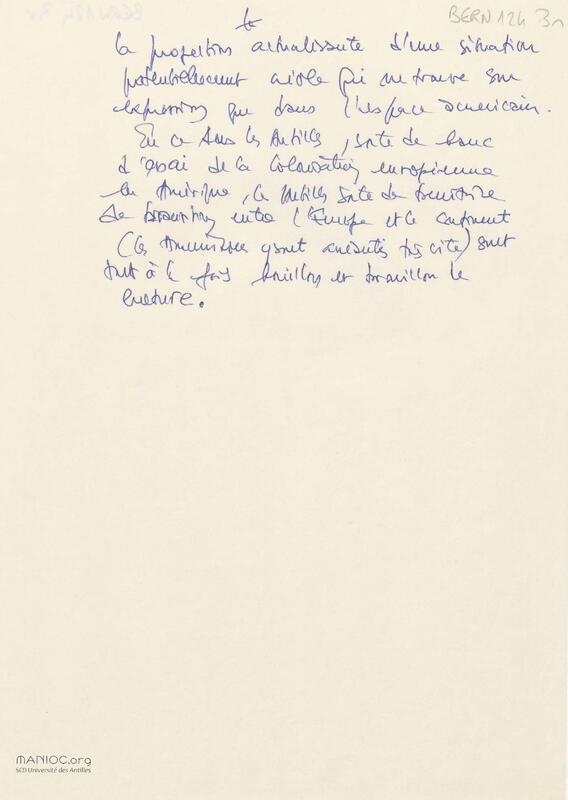 BERN 124 3n
la projection actualisante d'une situation
potentiellement créole qui ne trouve son
expression que dans l'espace américain.
En ce sens les Antilles, sorte de banc
d'essai de la Colonisation européenne
en Amérique, les Antilles sorte de
de entre l'Europe et le continent
(les Amérindiens y sont très vite) sont
tout à la fois bouillon et brouillon de
culture.
MANIOC.org
SCD Université des Antilles